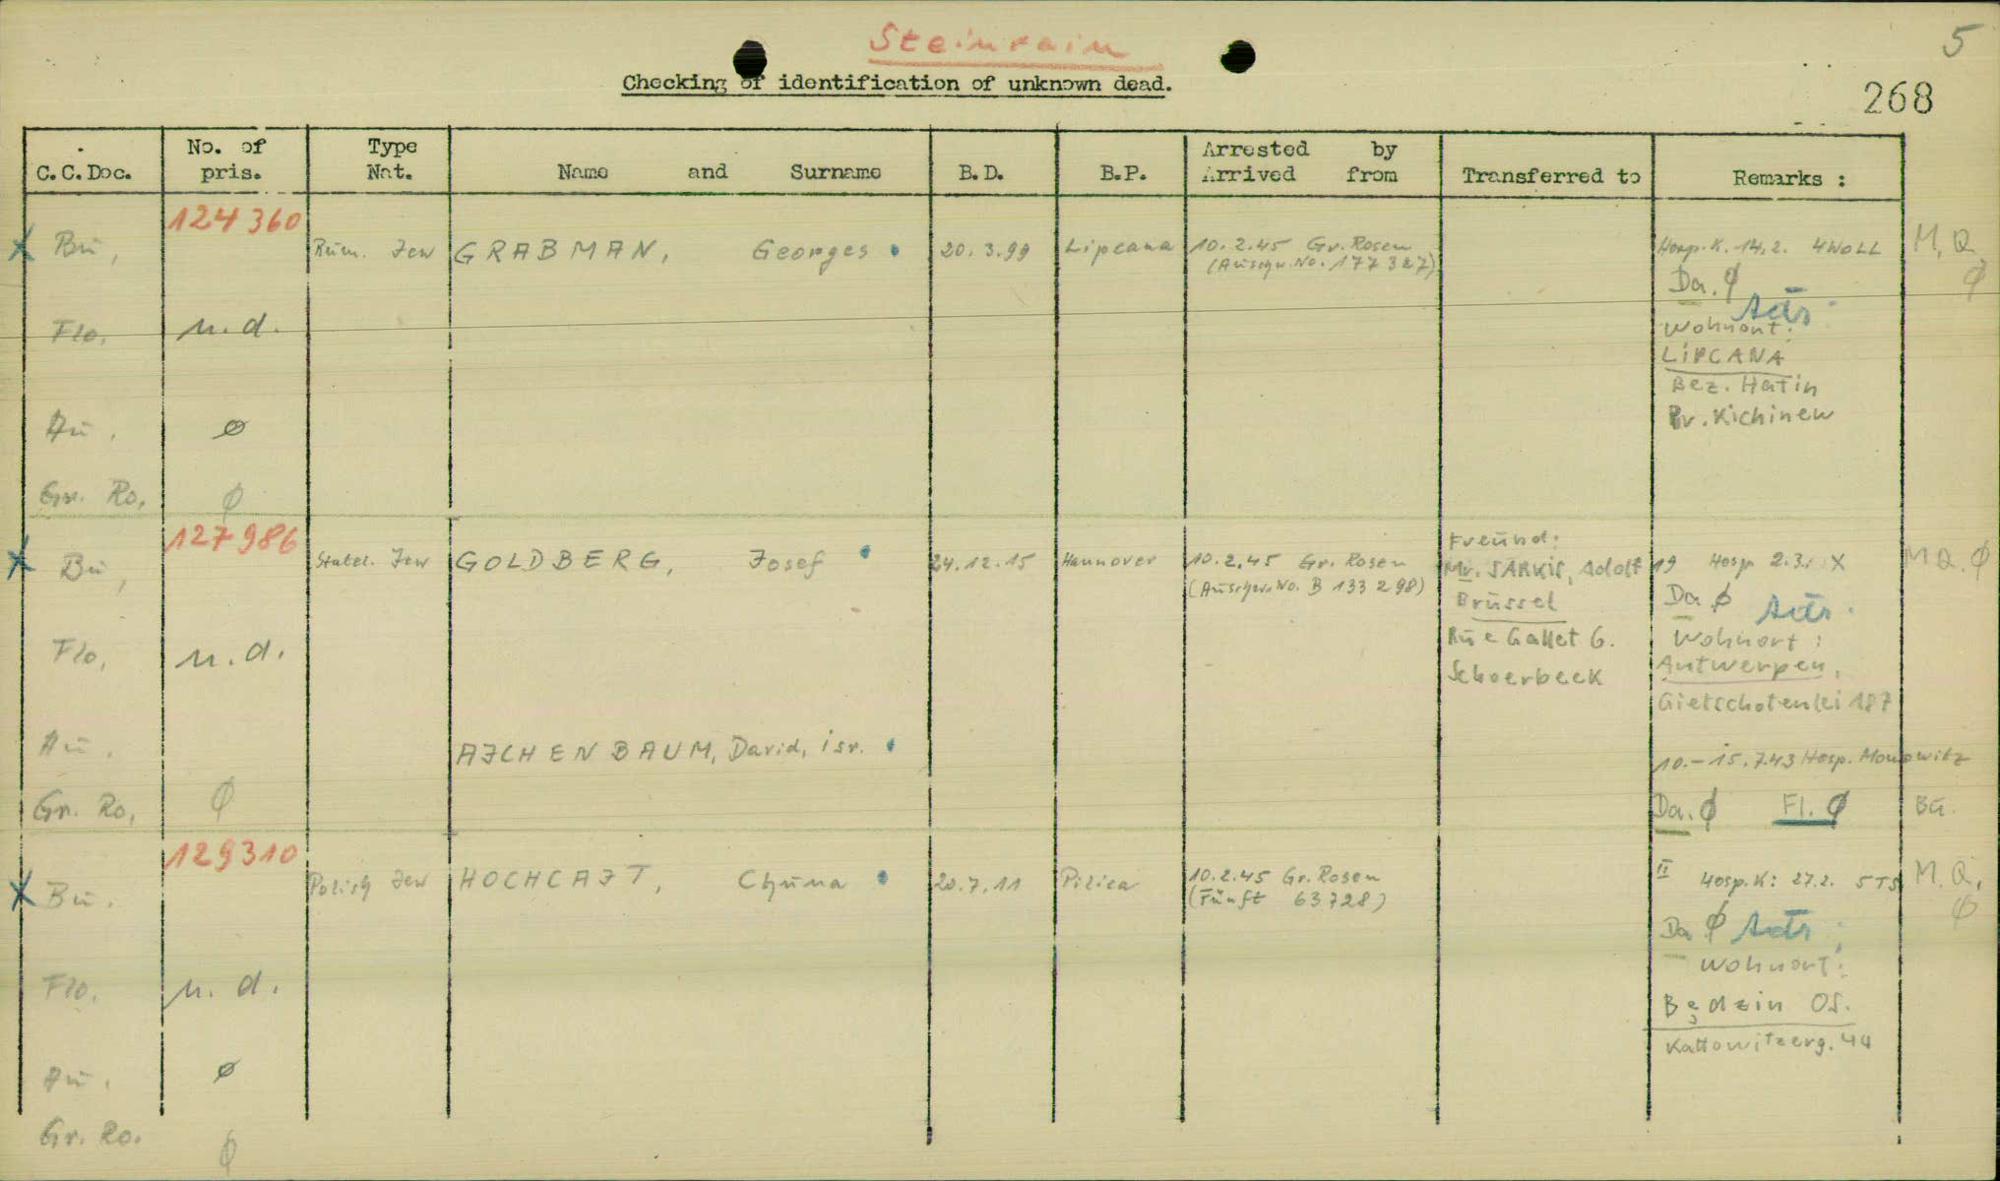 5
Steinrain
Checking of identification of unknown dead.
268
C.C.Doc. No. of pris. Type Nat. Name and Surname B.D. B.P. Arrested by Arrived from Transferred to Remarks :
124360
X Bu, Rum. Jew GRABMAN, Georges 20.3.99 Lipcana 10.2.45 Gr. Rosen Hosp. K. 14.2. M.Q. Ø
(Auschw. No. 177327)
Da. Ø
Flo, n.d. Wohnort:
LIPCANA
Bez. Hotin
Au. Ø Pr. Kichinew
Gr. Ro, Ø
127986
Freund:
X Bu, Statel. Jew GOLDBERG, Josef 24.12.15 Hannover 10.2.45 Gr. Rosen Mr. SARKIS, Adolf 19 Hosp 2.3. X M.Q. Ø
(Auschw. No. B 133298) Brüssel Da Ø
Flo, n.d. Rue Gallet 6. Wohnort:
Schoerbeek Antwerpen,
Gietschotenlei 187
Au. AJCHENBAUM, David, isr. 10.-15.7.43 Hosp. Monowitz
Gr. Ro, Ø Da. Ø Fl. Ø Bu.
129310
X Bu. Polish Jew HOCHCAJT, Chuna 20.7.11 Pilica 10.2.45 Gr. Rosen II Hosp. K: 27.2. M.Q. Ø
(Fünft 63728)
Da Ø
Wohnort:
Flo. n.d. Będzin OS.
Kattowitzerg. 44
Au. Ø
Gr. Ro. Ø